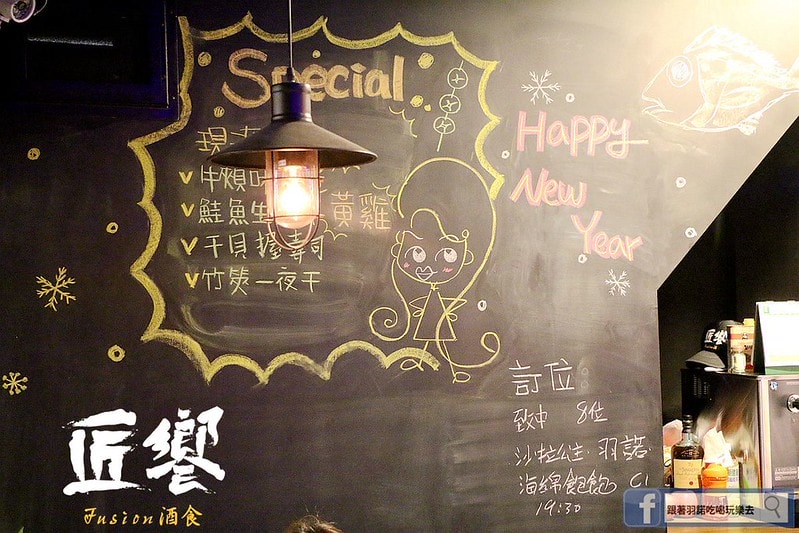 Special
現
牛頰
鮭魚生 黃雞
干貝握壽司
竹筴一夜干
Happy
New
Year
訂位
致中 8位
沙拉公主 羽諾
海綿飽飽 C1
19:30
匠饗
Fusion酒食
匠饗
跟著羽諾吃喝玩樂去